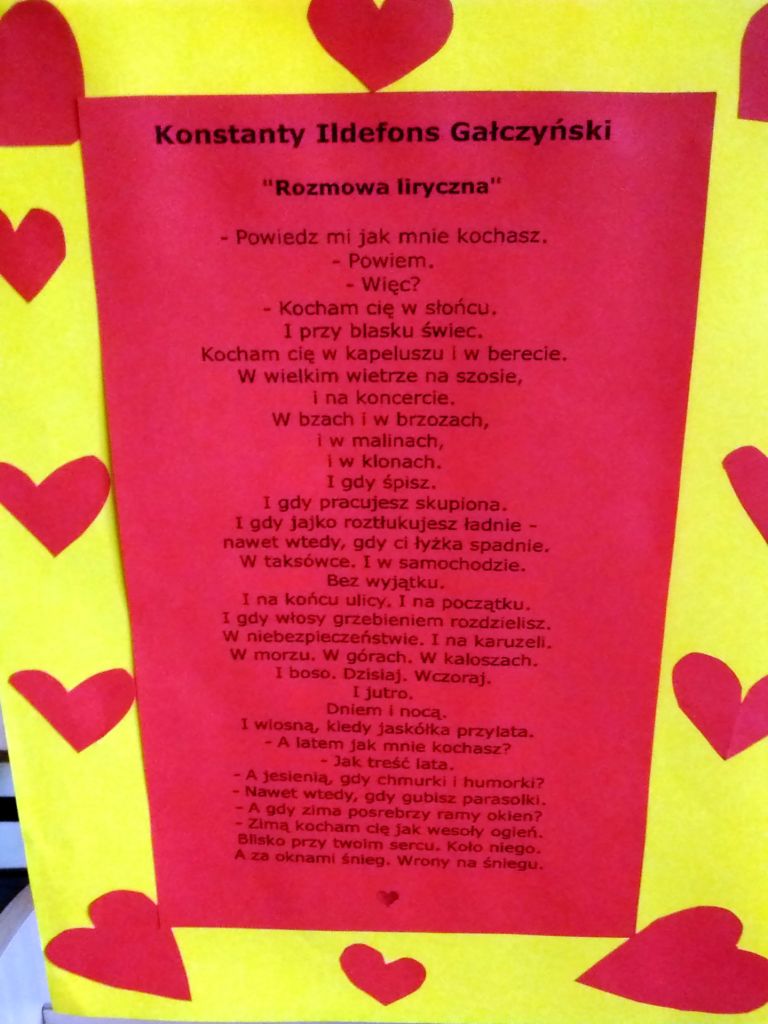 Konstanty Ildefons Gałczyński
"Rozmowa liryczna"
- Powiedz mi jak mnie kochasz.
- Powiem.
- Więc?
- Kocham cię w słońcu.
I przy blasku świec.
Kocham cię w kapeluszu i w berecie.
W wielkim wietrze na szosie,
i na koncercie.
W bzach i w brzozach,
i w malinach,
i w klonach.
I gdy śpisz.
I gdy pracujesz skupiona.
I gdy jajko roztłukujesz ładnie -
nawet wtedy, gdy ci łyżka spadnie.
W taksówce. I w samochodzie.
Bez wyjątku.
I na końcu ulicy. I na początku.
I gdy włosy grzebieniem rozdzielisz.
W niebezpieczeństwie. I na karuzeli.
W morzu. W górach. W kaloszach.
I boso. Dzisiaj. Wczoraj.
I jutro.
Dniem i nocą.
I wiosną, kiedy jaskółka przylata.
- A latem jak mnie kochasz?
- Jak treść lata.
- A jesienią, gdy chmurki i humorki?
- Nawet wtedy, gdy gubisz parasolki.
- A gdy zima posrebrzy ramy okien?
- Zimą kocham cię jak wesoły ogień.
Blisko przy twoim sercu. Koło niego.
A za oknami śnieg. Wrony na śniegu.